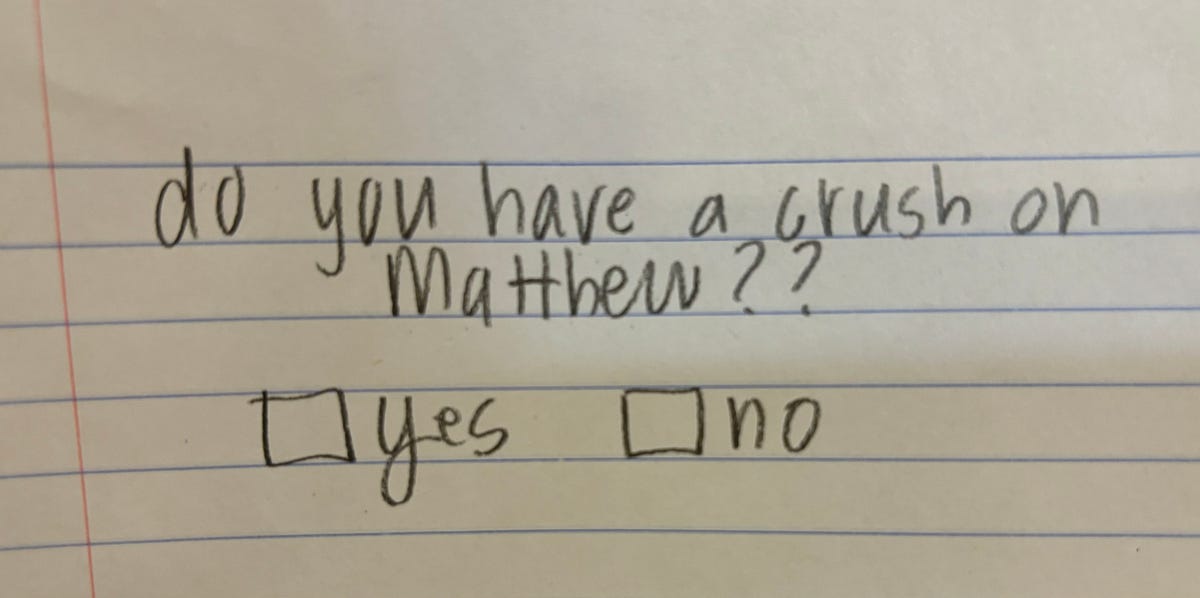 do you have a crush on
Matthew??
☐ yes ☐ no